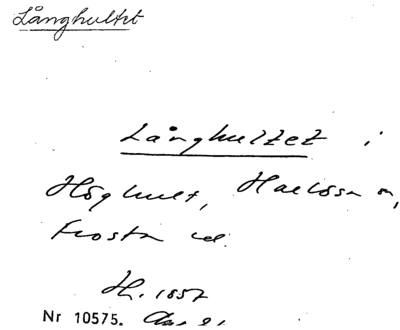 Långhultet
Långhultet i
Höghult, Harlösa s,
Frosta hd.
H. 1857
Nr 10575.